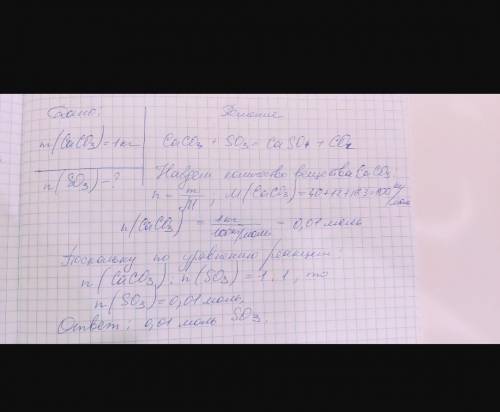 Дано: Решение
m(CaCO3)=1кг CaCO3 + SO3 = CaSO4 + CO2
n(SO3)-? Найдем количество вещества CaCO3:
n = m/M, M(CaCO3)=40+12+16·3=100 кг/моль
n(CaCO3) = 1кг/100кг/моль = 0,01 моль
Поскольку по уравнению реакции:
n(CaCO3):n(SO3)=1:1, то
n(SO3)=0,01 моль.
Ответ: 0,01 моль SO3.